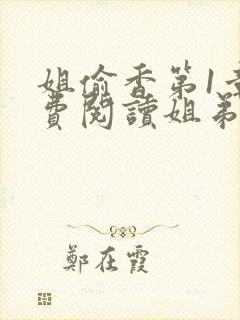 姐偷香第1章
費閱讀姐弟
鄭在霞